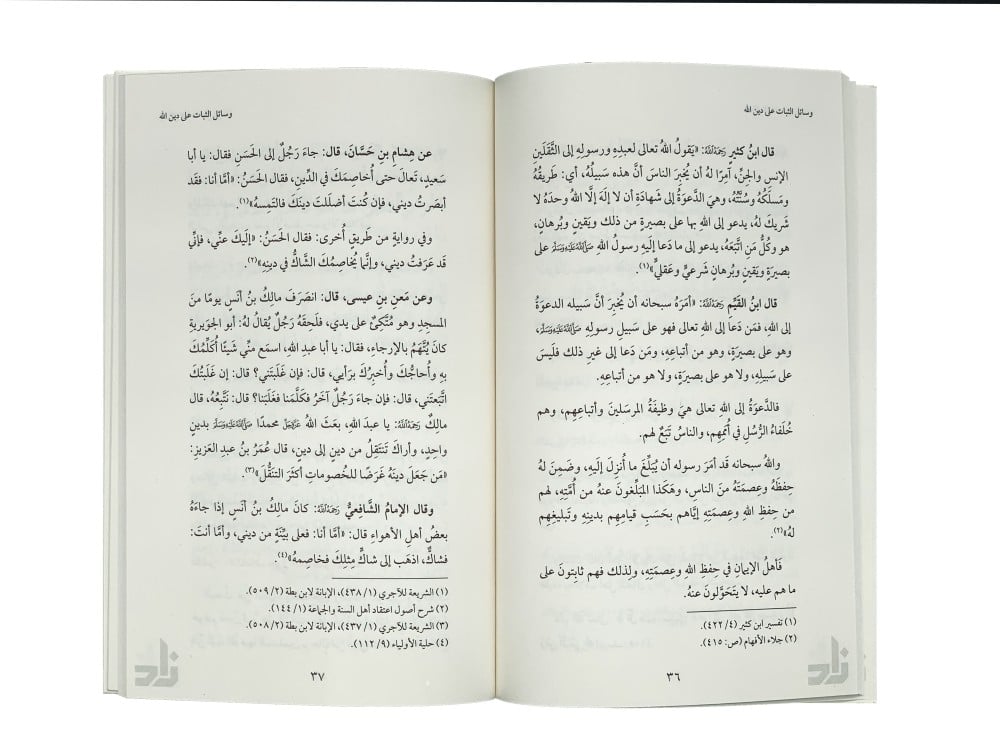 وسائل الثبات على دين الله
قال ابنُ كثيرٍ رَحِمَهُ اللَّهُ: «يَقولُ اللهُ تعالى لعبدِهِ ورسولِهِ إلى الثَّقَلَينِ
الإنسِ والجِنِّ، آمِرًا لهُ أن يُخبِرَ الناسَ أنَّ هذه سَبيلُهُ، أي: طَريقُهُ
ومَسلَكُهُ وسُنَّتُهُ، وهيَ الدَّعوَةُ إلى شَهادَةِ أن لا إلَهَ إلَّا اللهُ وحدَهُ لا
شَريكَ لهُ، يدعو إلى اللهِ بها على بصيرةٍ من ذلك ويَقينٍ وبُرهانٍ،
هو وكُلُّ مَنِ اتَّبَعَهُ، يدعو إلى ما دَعا إلَيهِ رسولُ اللهِ صَلَّى اللَّهُ عَلَيْهِ وَسَلَّمَ على
بصيرَةٍ ويَقينٍ وبُرهانٍ شَرعيٍّ وعَقليٍّ»(١).
قال ابنُ القَيِّمِ رَحِمَهُ اللَّهُ: «أمَرَهُ سبحانه أن يُخبِرَ أنَّ سَبيلَه الدعوَةُ
إلى اللهِ، فمَن دَعا إلى اللهِ تعالى فهو على سَبيلِ رسولِهِ صَلَّى اللَّهُ عَلَيْهِ وَسَلَّمَ،
وهو على بصيرَةٍ، وهو من أتباعِهِ، ومَن دَعا إلى غيرِ ذلك فلَيسَ
على سَبيلِهِ، ولا هو على بصيرَةٍ، ولا هو من أتباعِهِ.
فالدَّعوَةُ إلى اللهِ تعالى هيَ وظيفَةُ المرسَلينَ وأتباعِهِم، وهم
خُلَفاءُ الرُّسُلِ في أُمَمِهِم، والناسُ تَبَعٌ لهم.
واللهُ سبحانه قد أمَرَ رسوله أن يُبَلِّغَ ما أُنزِلَ إلَيهِ، وضَمِنَ لهُ
حِفظَهُ وعِصمَتَهُ منَ الناسِ، وهَكَذا المبَلِّغونَ عنهُ من أُمَّتِهِ، لهم
من حِفظِ اللهِ وعِصمَتِهِ إيَّاهم بحَسَبِ قيامِهِم بدينِهِ وتَبليغِهِم
لهُ»(٢).
فأهلُ الإيمانِ في حِفظِ اللهِ وعِصمَتِهِ، ولِذلك فهم ثابِتونَ على
ما هم عليه، لا يَتَحَوَّلونَ عنهُ.
(١) تفسير ابن كثير (٤/ ٤٢٢).
(٢) جلاء الأفهام (ص: ٤١٥).
٣٦
زاد
وسائل الثبات على دين الله
عن هِشامِ بنِ حَسَّانَ، قال: جاءَ رَجُلٌ إلى الحَسَنِ فقال: يا أبا
سَعيدٍ، تَعالَ حتى أُخاصِمَكَ في الدِّينِ، فقال الحَسَنُ: «أمَّا أنا: فقَد
أبصَرتُ ديني، فإن كُنتَ أضلَلتَ دينَكَ فالتَمِسهُ»(١).
وفي روايةٍ من طَريقٍ أُخرى: فقال الحَسَنُ: «إلَيكَ عنِّي، فإنِّي
قَد عَرَفتُ ديني، وإنَّما يُخاصِمُكَ الشَّاكُّ في دينِهِ»(٢).
وعن مَعنِ بنِ عيسى، قال: انصَرَفَ مالِكُ بنُ أنَسٍ يومًا منَ
المسجِدِ وهو مُتَّكِئٌ على يدي، فلَحِقَهُ رَجُلٌ يُقالُ لهُ: أبو الجُوَيرية
كانَ يُتَّهَمُ بالإرجاءِ، فقال: يا أبا عبدِ اللهِ، اسمَع منِّي شَيئًا أُكَلِّمُكَ
بهِ وأُحاجُّكَ وأُخبِرُكَ برَأيي، قال: فإن غَلَبتَني؟ قال: إن غَلَبتُكَ
اتَّبَعتَني، قال: فإن جاءَ رَجُلٌ آخَرُ فكَلَّمَنا فغَلَبَنا؟ قال: نَتَّبِعُهُ، قال
مالِكٌ رَحِمَهُ اللَّهُ: يا عبدَ اللهِ، بعَثَ اللهُ عَزَّ وَجَلَّ محمدًا صَلَّى اللَّهُ عَلَيْهِ وَسَلَّمَ بدينٍ
واحِدٍ، وأراكَ تَنتَقِلُ من دينٍ إلى دينٍ، قال عُمَرُ بنُ عبدِ العَزيزِ:
«مَن جَعَلَ دينَهُ غَرَضًا للخُصوماتِ أكثَرَ التنَقُّلَ»(٣).
وقال الإمامُ الشَّافِعيُّ رَحِمَهُ اللَّهُ: كانَ مالِكُ بنُ أنَسٍ إذا جاءَهُ
بعضُ أهلِ الأهواءِ قال: «أمَّا أنا: فعلى بيِّنَةٍ من ديني، وأمَّا أنتَ:
فشاكٌّ، اذهَب إلى شاكٍّ مِثلِكَ فخاصِمهُ»(٤).
(١) الشريعة للآجري (١/ ٤٣٨)، الإبانة لابن بطة (٢/ ٥٠٩).
(٢) شرح أصول اعتقاد أهل السنة والجماعة (١/ ١٤٤).
(٣) الشريعة للآجري (١/ ٤٣٧)، الإبانة لابن بطة (٢/ ٥٠٨).
(٤) حلية الأولياء (٩/ ١١٢).
٣٧
زاد